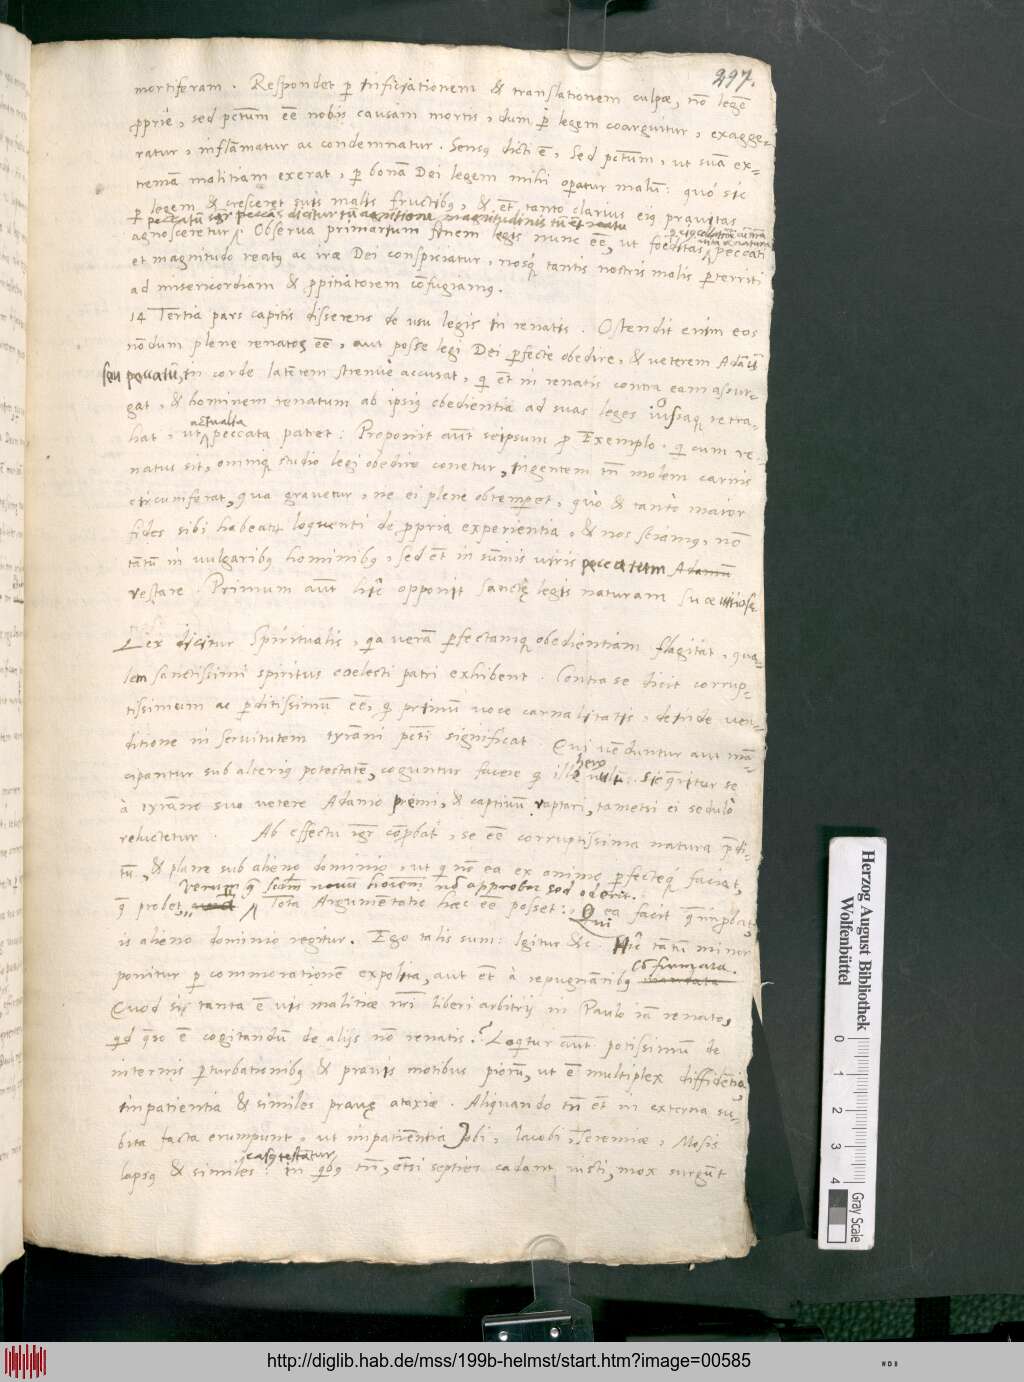 297.
mortiferam. Respondet ꝑ inficiationem & translationem culpæ, nō legē
ꝓprie, sed pctūm eē nobis causam mortis, dum ꝑ legem coarguitur, exagge-
ratur, inflāmatur ac condemnatur. Sensꝰ dicti ē, Sed pctūm, ut suā ex-
tremā malitiam exerat, ꝑ bonā Dei legem mihi oꝑatur malū: quo sic
ꝑ legem & cresceret suis malis fructibꝰ, & ēt tanto clarius eiꝰ prauitas
peccatū dicitur tū agnitione magnitudinis tū et reatu
agnosceretur. Obserua primarium finem legis nunc eē, ut foeditas peccati
et magnitudo reatꝰ ac iræ Dei conspiciatur, nosqꝫ tantis nostris malis ꝑterriti
ad misericordiam & ꝓpitiatorem cōfugiamꝰ.
14 Tertia pars capitis disserens de usu legis in renatis. Ostendit enim eos
nōdum plene renatos eē, aut posse legi Dei ꝑfecte obedire, & veterem Adamū
seu peccatū, in corde latētem strenue accusat, qi ēt in renatis contra eam assur-
gat, & hominem renatum ab ipsiꝰ obedientia ad suas leges iussaqꝫ retra-
hat, ut actualia peccata patret: Proponit aūt seipsum ꝓ Exemplo. qi cum re-
natus sit, omniqꝫ studio legi obedire conetur, ingentem tn̄ molem carnis
circumferat, qua grauetur, ne ei plene obtemꝑet, quò & tantò maior
fides sibi habeatur loquenti de ꝓpria experientia, & nos sciamꝰ, nō
tātū in vulgaribꝰ hominibꝰ, sed ēt in sūmis viris peccatum Adamū
restare. Primum aūt hic opponit sanctę legis naturam suæ vitiosę
Lex dicitur Spiritualis, qa verā ꝑfectamqꝫ obedientiam flagitat, qua-
lem sanctissimi spiritus coelesti patri exhibent. Contra se dicit corrup-
tissimum ac ꝑditissimū eē, qd primū voce carnalitatis, deinde ven-
ditione in seruitutem tyrāni pcti significat. Qui vēduntur aut mā-
cipantur sub alteriꝰ potestatē, coguntur facere qd ille hero vult: sic qritur se
à tyrāno suo vetere Adamo premi, & captiuū raptari, tametsi ei sedulò
reluctetur. Ab effectu igr cōprobat, se eē corruptissima natura pdi-
tū, & plane sub alieno dominio, ut qi nō ea ex animo ꝑfecteqꝫ faciat,
verum nō approbat sed oderit.
q̄ probet, Tota Argumētatio hæc eē posset: Qui ea facit q̄ improbat,
is alieno dominio regitur. Ego talis sum: Igitur &c. Hic tātū minor
ponitur ꝑ commorationē expolita, aut ēt à repugnātibꝰ confirmata.
Quod si tanta ē vis malitiæ nri liberi arbitrij in Paulo iā renato,
qd qso ē cogitandū de alijs nō renatis? Loqitur aūt potissimū de
internis ꝑturbationibꝰ & prauis motibus piorū, ut ē multiplex diffidētia,
impatientia & similes prauę ataxiæ. Aliquando tn̄ ēt in externa su-
bita facta erumpunt, ut impatiētia Jobi, Jacobi, Ieremiæ, Mosis
lapsꝰ & similes casꝰ testātur. in qibꝰ tn̄, etsi septies cadant iusti, mox surgūt
Herzog August Bibliothek
Wolfenbüttel
0 1 2 3 4
Gray Scale
http://diglib.hab.de/mss/199b-helmst/start.htm?image=00585